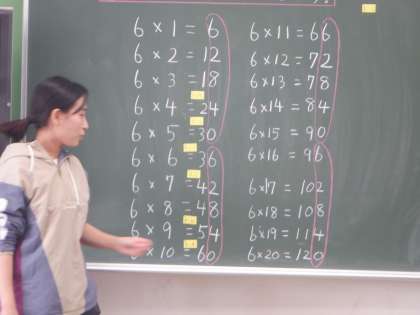 6 × 1 = 6
6 × 2 = 12
6 × 3 = 18
6 × 4 = 24
6 × 5 = 30
6 × 6 = 36
6 × 7 = 42
6 × 8 = 48
6 × 9 = 54
6 × 10 = 60
6 × 11 = 66
6 × 12 = 72
6 × 13 = 78
6 × 14 = 84
6 × 15 = 90
6 × 16 = 96
6 × 17 = 102
6 × 18 = 108
6 × 19 = 114
6 × 20 = 120